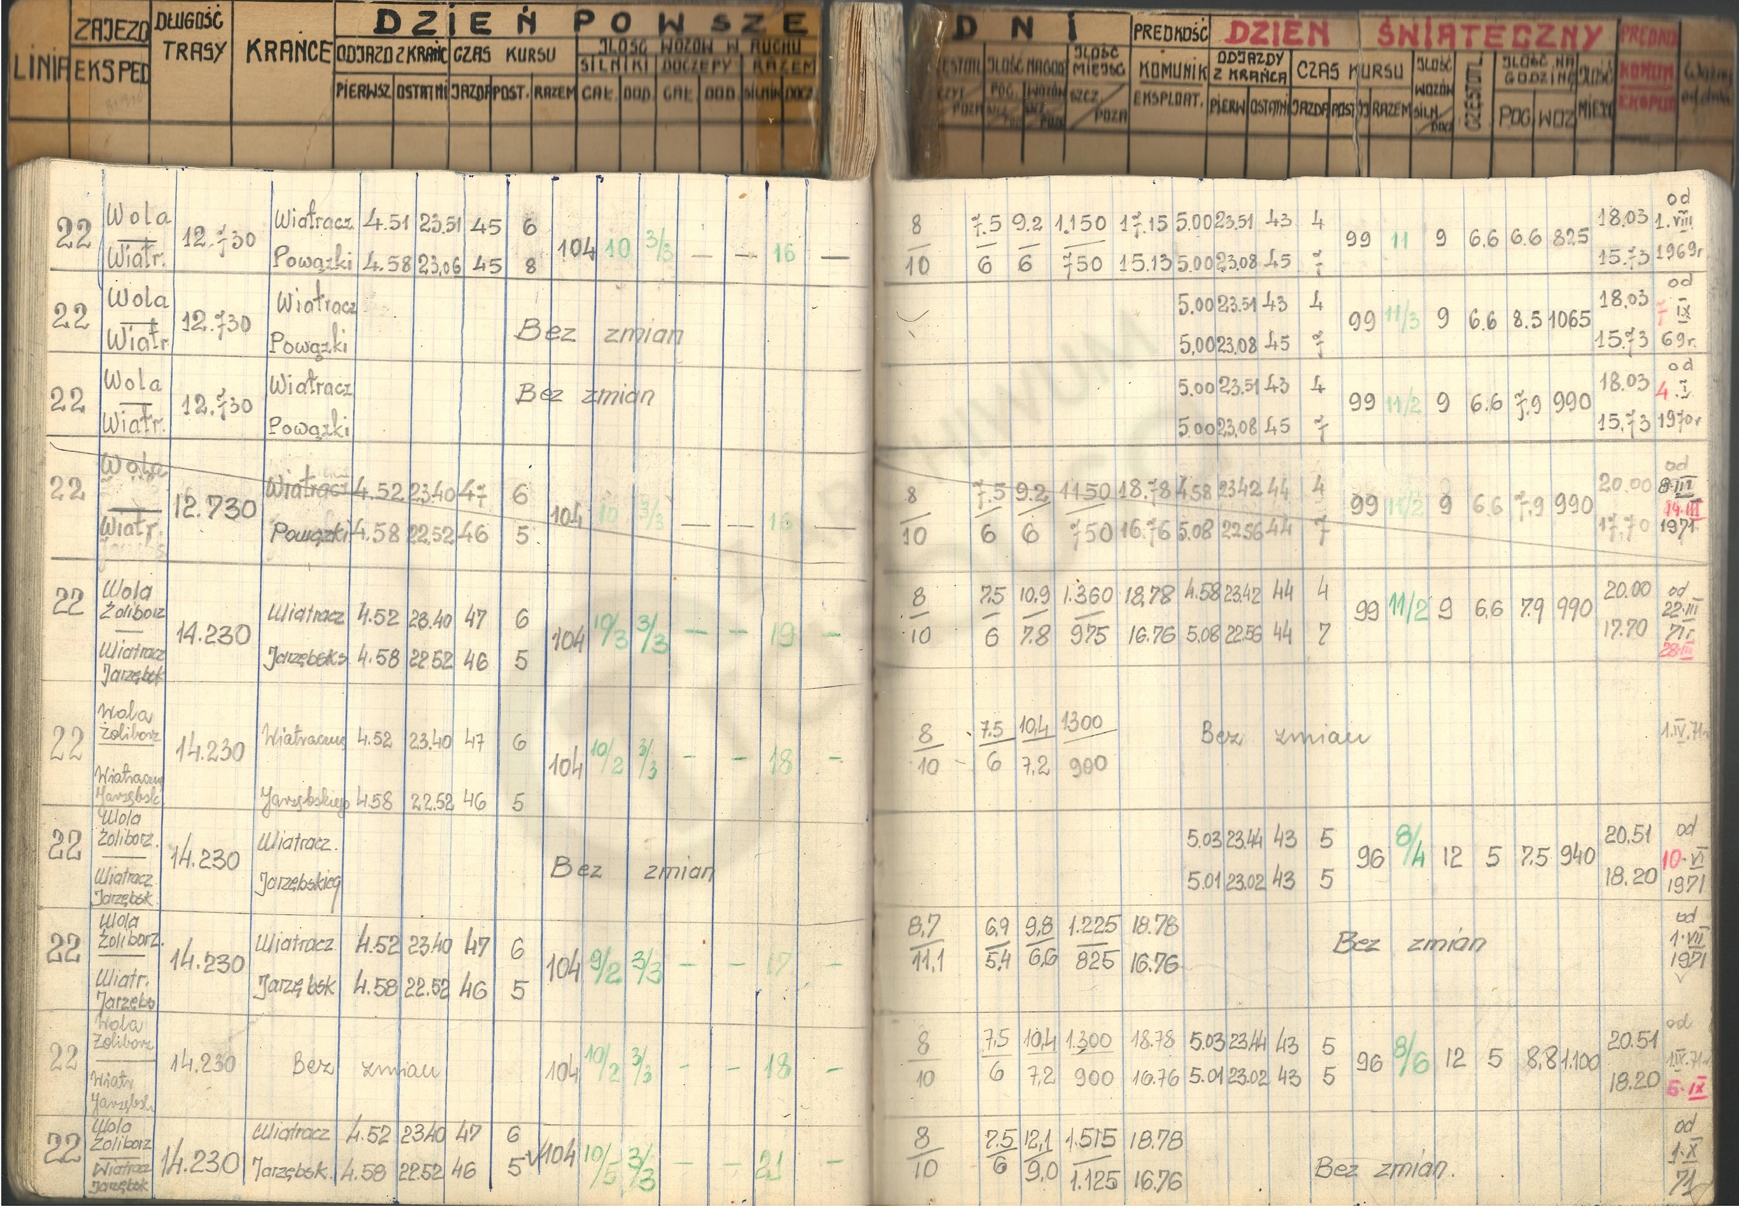 LINIA ZAJEZD EKSPED DŁUGOŚĆ TRASY KRAŃCE DZIEŃ POWSZE
ODJAZD Z KRAŃC CZAS KURSU ILOŚĆ WOZÓW W RUCHU
SILNIKI DOCZEPY RAZEM
PIERWSZ OSTATNI JAZDA POST. RAZEM CAŁ. DOD. CAŁ. DOD. SILNIK DOCZ.
DNI PREDKOŚĆ KOMUNIK EKSPLOAT. DZIEŃ ŚWIĄTECZNY
ILOŚĆ MIEJSC ODJAZDY Z KRAŃCA CZAS KURSU ILOŚĆ WOZÓW CZĘSTOTL. ILOŚĆ NA GODZINĘ
PIERW OSTATNI JAZDA POSTÓJ RAZEM SILN. POC WOZ
22 Wola Wiatr. 12.730 Wiatracz 4.51 23.51 45 6 104 10 3/3 — — 16 —
Powązki 4.58 23.06 45 8
8 7.5 9.2 1.150 17.15 5.00 23.51 43 4 99 11 9 6.6 6.6 825 18.03 od 1.VIII
10 6 6 750 15.13 5.00 23.08 45 7 15.73 1969r
22 Wola Wiatr 12.730 Wiatracz Powązki Bez zmian
5.00 23.51 43 4 99 11/3 9 6.6 8.5 1065 18.03 od 7 IX
5.00 23.08 45 7 15.73 69r.
22 Wola Wiatr. 12.730 Wiatracz Powązki Bez zmian
5.00 23.51 43 4 99 11/2 9 6.6 7.9 990 18.03 od 4.I
5.00 23.08 45 7 15.73 1970r
22 Wola Wiatr. 12.730 Wiatracz 4.52 23.40 47 6 104 10 3/3 — — 16 —
Powązki 4.58 22.52 46 5
8 7.5 9.2 1150 18.78 4.58 23.42 44 4 99 11/2 9 6.6 7.9 990 20.00 od 8.III 14.III
10 6 6 750 16.76 5.08 22.56 44 7 17.70 1971
22 Wola Żoliborz Wiatracz Jarzębsk 14.230 Wiatracz 4.52 23.40 47 6 104 10/3 3/3 — — 19 —
Jarzębsk 4.58 22.52 46 5
8 7.5 10.9 1.360 18.78 4.58 23.42 44 4 99 11/2 9 6.6 7.9 990 20.00 od 22.III
10 6 7.8 975 16.76 5.08 22.56 44 7 17.70 71r. 28.III
22 Wola Żoliborz 14.230 4.52 23.40 47 6 104 10/2 3/3 — — 18 —
Jarzębskiego 4.58 22.52 46 5
8 7.5 10,4 1300 Bez zmian 1.IV.71r
10 6 7,2 900
22 Wola Żoliborz. Wiatracz Jarzębsk 14.230 Wiatracz. Bez zmian
5.03 23.44 43 5 96 8/4 12 5 7.5 940 20.51 od 10.VI
5.01 23.02 43 5 18.20 1971
22 Wola Żoliborz. Wiatr. 14.230 Wiatracz 4.52 23.40 47 6 104 9/2 3/3 — — 17 —
Jarzębsk 4.58 22.52 46 5
8,7 6,9 9,8 1.225 18.78 Bez zmian od 1.VII
11,1 5,4 6,6 825 16.76 1971
22 Wola Żoliborz Wiatr 14.230 Bez zmian 104 10/2 3/3 — — 18 —
8 7,5 10,4 1.300 18.78 5.03 23.44 43 5 96 8/6 12 5 8,8 1.100 20.51 od
10 6 7,2 900 16.76 5.01 23.02 43 5 18.20 5.IX
22 Wola Żoliborz Wiatracz Jarzębsk 14.230 Wiatracz 4.52 23.40 47 6 104 10/5 3/3 — — 21 —
Jarzębsk. 4.58 22.52 46 5
8 7.5 12,1 1.515 18.78 Bez zmian. od 1.X
10 6 9,0 1.125 16.76 71